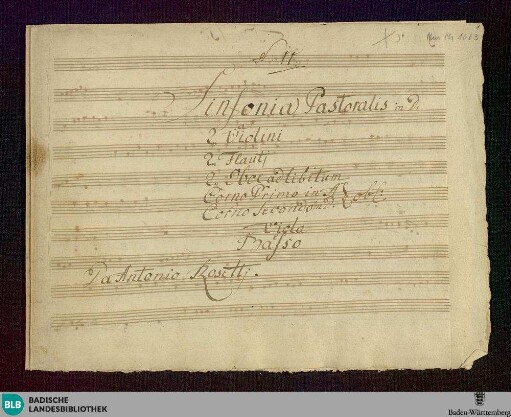 Mus. Hs. 1003
Sinfonia Pastoralis in D.
2. Violini
2. Flauti
2. Oboe ad libitum
Corno Primo in A
Corno Secondo in D.
Viola
Basso
Da Antonio Rosetti.
BLB BADISCHE
LANDESBIBLIOTHEK
Baden-Württemberg